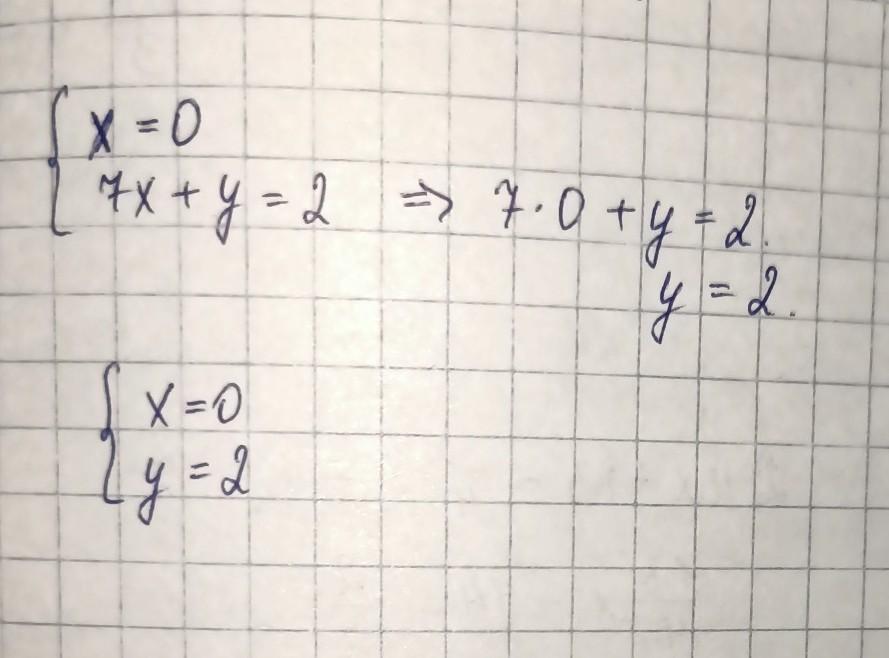 { x = 0
7x + y = 2 => 7 · 0 + y = 2.
y = 2.
{ x = 0
y = 2